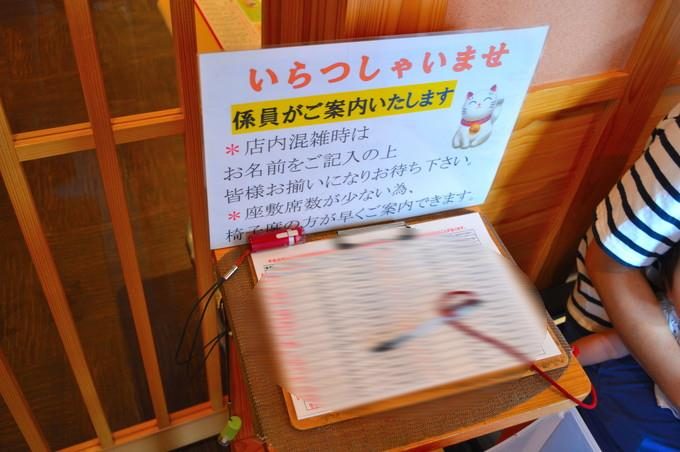 いらつしゃいませ
係員がご案内いたします
＊店内混雑時は
お名前をご記入の上
皆様お揃いになりお待ち下さい。
＊座敷席数が少ない為、
椅子席の方が早くご案内できます。